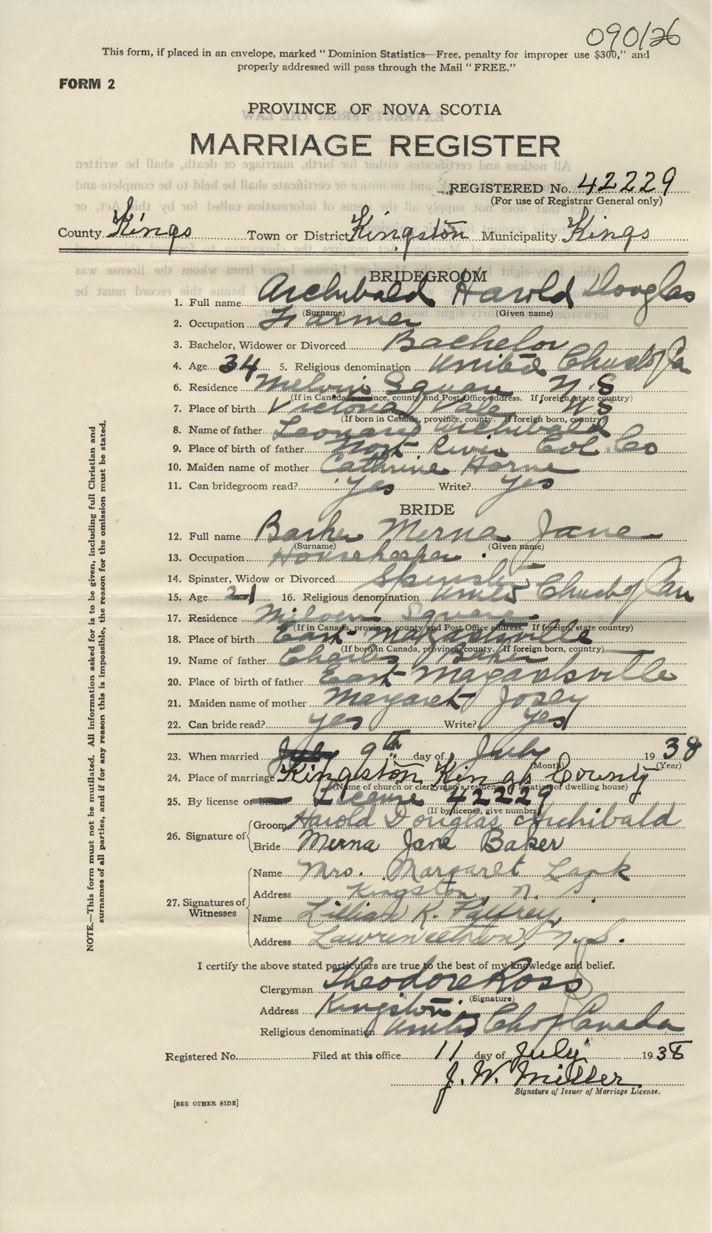 090126
This form, if placed in an envelope, marked "Dominion Statistics—Free, penalty for improper use $300," and
properly addressed will pass through the Mail "FREE."
FORM 2
PROVINCE OF NOVA SCOTIA
MARRIAGE REGISTER
REGISTERED No. 42229
(For use of Registrar General only)
County Kings Town or District Kingston Municipality Kings
BRIDEGROOM
1. Full name Archibald Harold Douglas
(Surname) (Given name)
2. Occupation Farmer
3. Bachelor, Widower or Divorced Bachelor
4. Age 34 5. Religious denomination United Church of Ca
6. Residence Melvin Square N.S
(If in Canada, province, county and Post Office address. If foreign state country)
7. Place of birth Victoria Vale N.S
(If born in Canada, province, county. If foreign born, country)
8. Name of father Leonard Archibald
9. Place of birth of father River Col. Co
10. Maiden name of mother Cathrine Horne
11. Can bridegroom read? Yes Write? Yes
BRIDE
12. Full name Baker Merna Jane
(Surname) (Given name)
13. Occupation Housekeeper
14. Spinster, Widow or Divorced Spinster
15. Age 21 16. Religious denomination United Church of Can
17. Residence Melvern Square
(If in Canada, province, county and Post Office address. If foreign state country)
18. Place of birth East Margaretsville
(If born in Canada, province, county. If foreign born, country)
19. Name of father Charles Baker
20. Place of birth of father East Margaretsville
21. Maiden name of mother Margaret
22. Can bride read? yes Write? Yes
23. When married 9th day of July 1938
(Month) (Year)
24. Place of marriage Kingston Kings County
(Name of church or clergyman's residence or location of dwelling house)
25. By license or License 42229
(If by license, give number)
26. Signature of
Groom Harold Douglas Archibald
Bride Merna Jane Baker
27. Signatures of Witnesses
Name Mrs. Margaret Lank
Address Kingston, N. S
Name Lillian K. Palfrey
Address Lawrencetown, N.S.
I certify the above stated particulars are true to the best of my knowledge and belief.
Clergyman Theodore Ross
(Signature)
Address Kingston
Religious denomination United Ch of Canada
Registered No. Filed at this office 11 day of July 1938
J. W. Miller
Signature of Issuer of Marriage License.
[SEE OTHER SIDE]
NOTE.—This form must not be mutilated. All information asked for is to be given, including full Christian and
surnames of all parties, and if for any reason this is impossible, the reason for the omission must be stated.